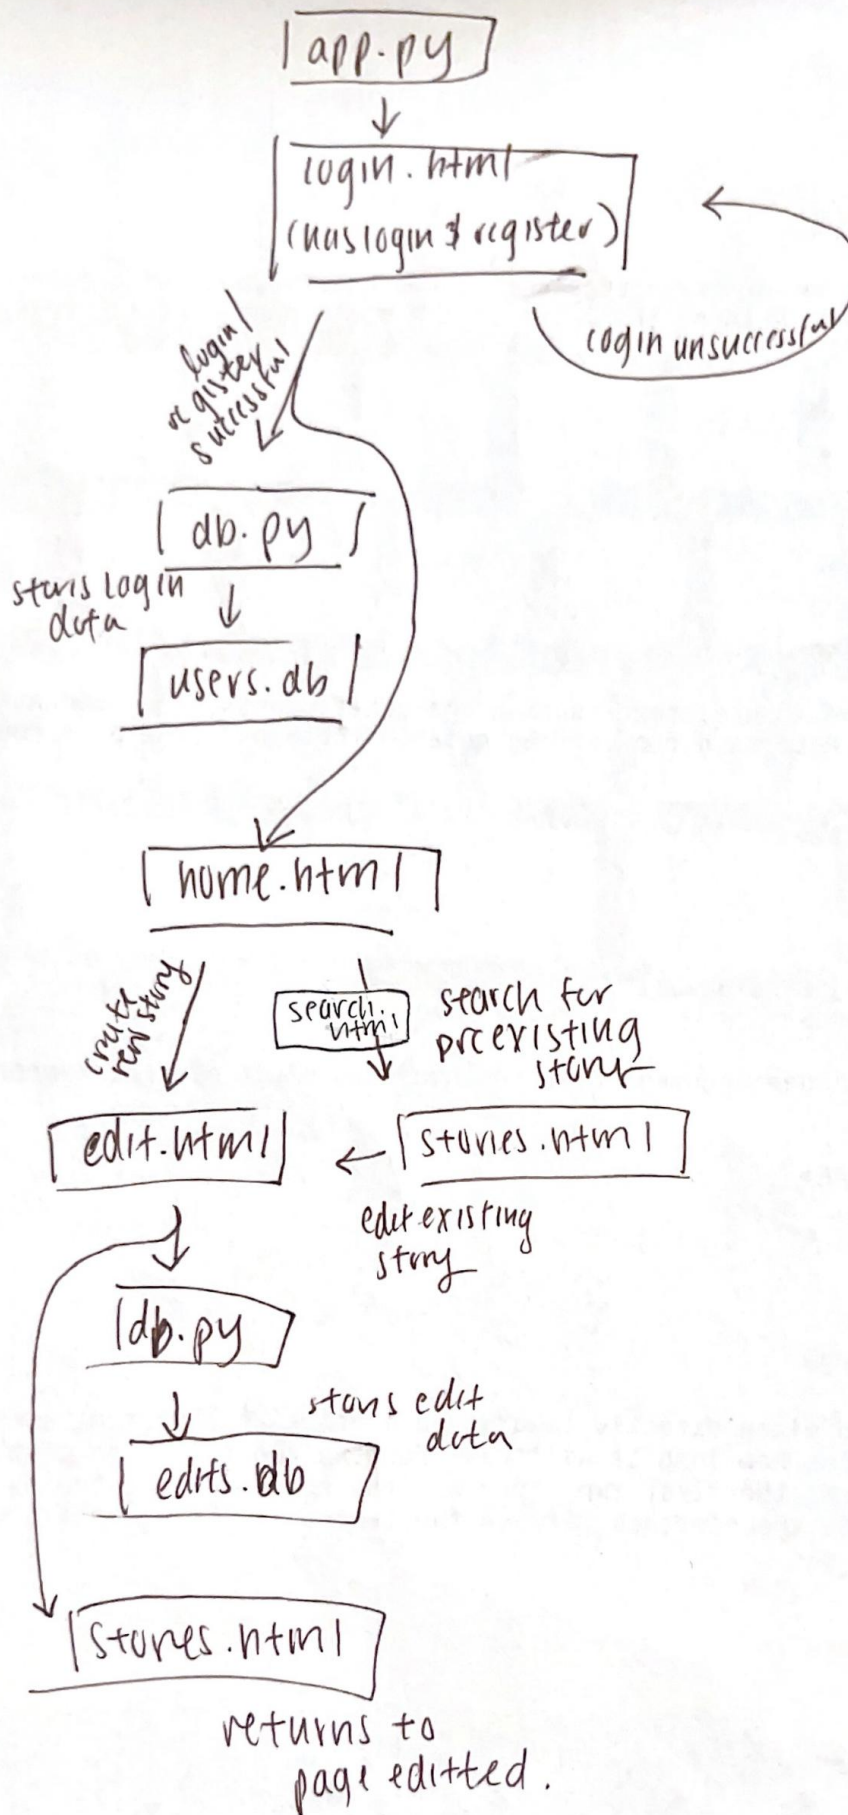 app.py
login.html
(has login & register)
login unsuccessful
login/
register
successful
db.py
stores login
data
users.db
home.html
create
new story
search.
html
search for
preexisting
story
edit.html
stories.html
edit existing
story
db.py
stores edit
data
edits.db
stories.html
returns to
page editted.